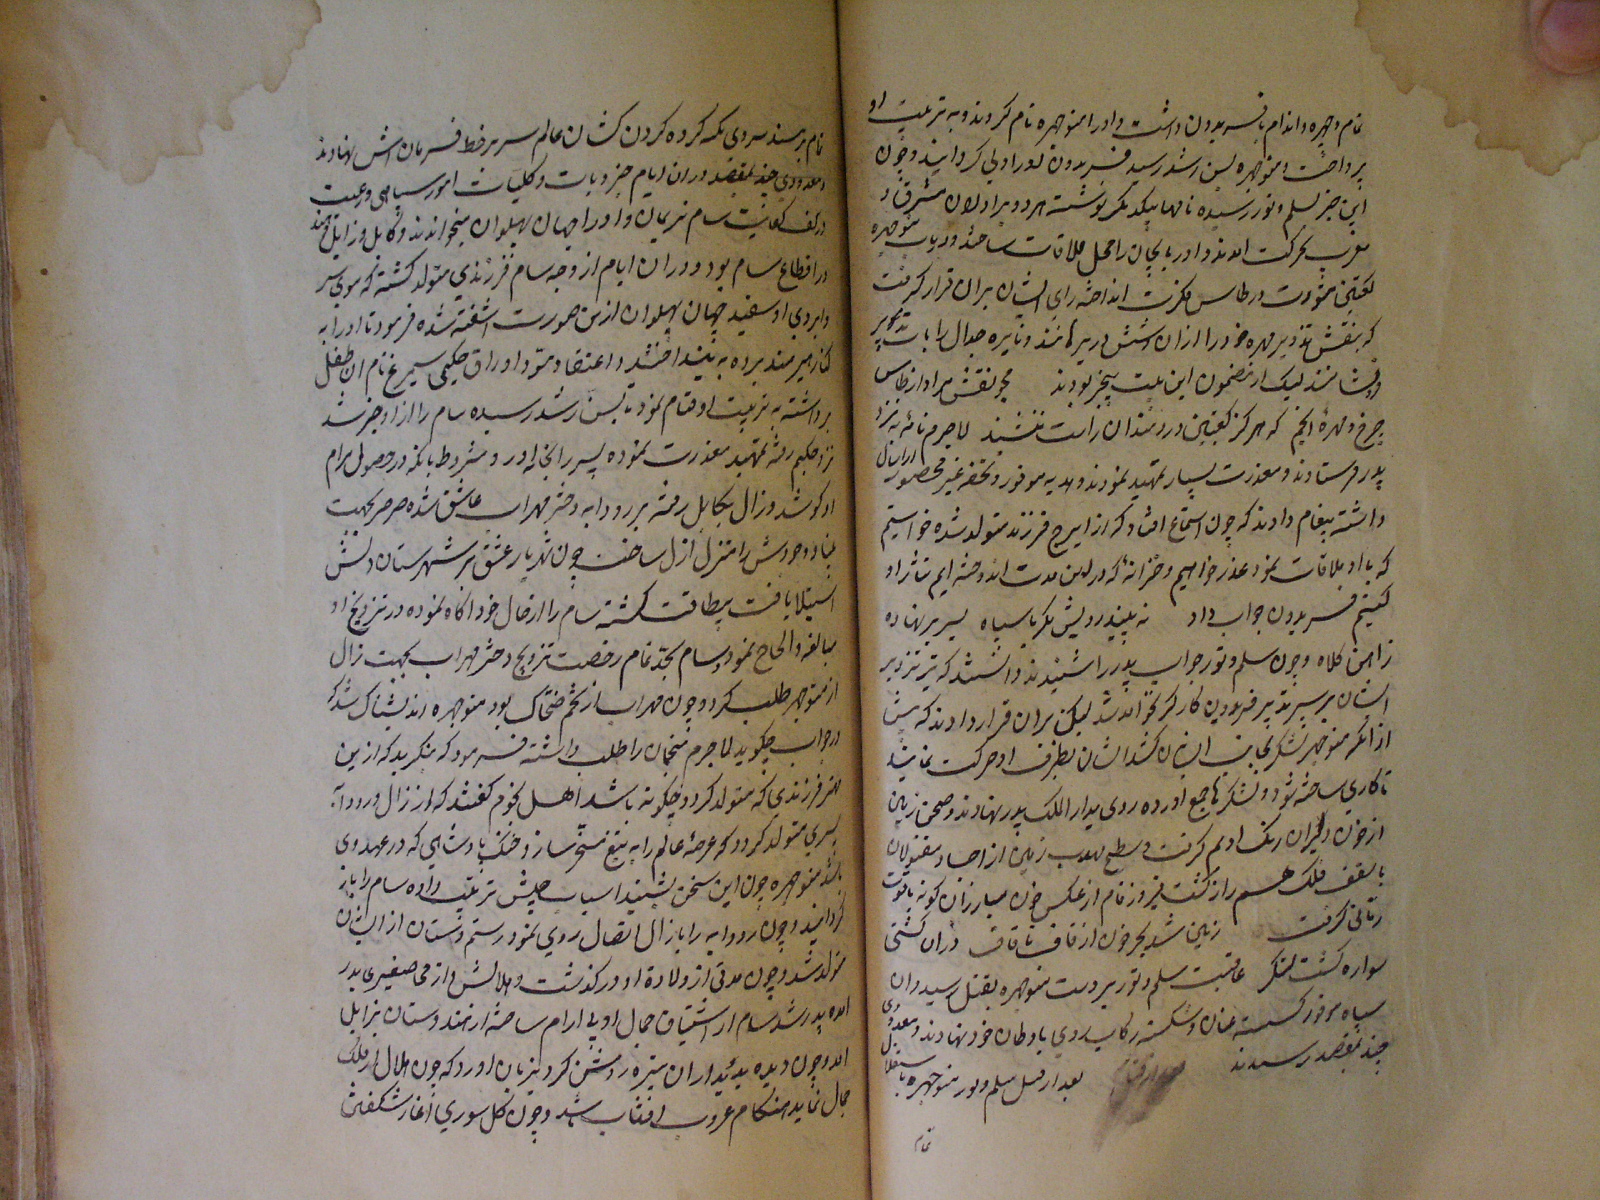 تمام و چهره و اندام با فریدون داشت و او را منوچهره نام کردند و به تربیت او
پرداخت و منوچهره بسن رشد رسید فریدون او را ولی گردانید و چون
این خبر بسلم و تور رسیده نامها بیکدیگر نوشته هر دو برادران مشرق و
مغرب بحرکت آمدند و ادربایجان را محل ملاقات ساخته و در باب منوچهره
کعبتین مشورت در طاس فکرت انداخته رای ایشان بران قرار گرفت
که بنقش تزویر مهره خود را ازان ششدر برهانند و نایره جدال را بآب تدبیر
فرونشانند لیک از مضمون این بیت بیخبر بودند مجو نقش مراد از طاس
چرخ و مهرهٔ انجم که هرگز کعبتین دردمندان راست ننشیند لاجرم نامه به نزد
پدر فرستادند و معذرت بسیار تمهید نمودند و هدیه موفور و تحفه غیر محصور ارسال
داشته پیغام دادند که چون استماع افتاد که از ایرج فرزند متولد شده خواستیم
که با او ملاقات نموده عذر خواهیم و خزانه که درین مدت اندوخته ایم نثار او
کنیم فریدون جواب داد نه بیند رویش مگر با سپاه بسر بر نهاده
ز آهن کلاه و چون سلم و تور جواب پدر را شنیدند دانستند که تیر تزویر
ایشان بر سپر تدبیر فریدون کارگر نخواهد شد لیکن بران قرار دادند که پیش
از آنکه منوچهر لشکر بجانب ایشان کشد ایشان بطرف او حرکت نمایند
تا کاری ساخته شود و لشکرها جمع آورده روی بدار الملک پدر نهادند و صحن زمین
از خون دلیران رنگ ادیم گرفت و سطح زمین از اجساد مقتولان
با سقف فلک همراز گشت فیروزه فام از عکس خون مبارزان گونه یاقوت
رمانی گرفت زمین شد بحر خون از قاف تا قاف دران کشتی
سواره گشت لشکر عاقبت سلم و تور بر دست منوچهره بقتل رسیدند و ان
سپاه موفور گسسته عنان و شکسته رکاب روی باوطان خود نهادند و معدودی
چند بمقصد رسیدند بعد از قتل سلم و تور منوچهره باستقلال
تمام
تمام بر مسند سروری تکیه کرده گردن کشان عالم سر بر خط فرمان اش نهادند
و معدودی چند بمقصد دران ایام جزویات و کلیات امور سپاهی و رعیت
در کف کفایت سام نریمان و او را جهان پهلوان میخواندند و کابل و زابل و هند
در اقطاع سام بود و دران ایام از زوجه سام فرزندی متولد گشته که موی سر
و ابروی او سفید جهان پهلوان ازین صورت آشفته شده فرمود تا او را به
کنار هیرمند برده به بیند اختند و اعتقاد حکیمی سیمرغ نام ان طفل
برداشته به تربیت او قیام نمود تا بسن رشد رسیده سام را ازو خبر شد
نزد حکیم رفته تمهید معذرت نموده پسر را بخانه اورد مشروط بآنکه در حصول مرام
او کوشد و زال بکابل رفته بر رودابه دختر مهراب عاشق شده صرصر محبت
بنیاد وجودش را متزلزل ساخت چون شهریار عشق بر شهرستان دلش
استیلا یافت بیطاقت گشته سام را از حال خود آگاه نموده در تزویج او
مبالغه و الحاح نمود و سام بجد تمام رخصت تزویج دختر مهراب بجهت زال
از منوچهر طلب کرد و چون مهراب از تخم ضحاک بود منوچهره اندیشناک شد که
در جواب چگوید لاجرم منجمان را طلب داشته فرمود که بنگرید که ازین
فرزندی که متولد گردد چگونه باشد اهل نجوم گفتند که از زال و رودابه
پسری متولد گردد که عرصه عالم را به تیغ مسخر سازد و خنگ بادشاهی که در عهد وی
باشد منوچهره چون این سخن بشنید اسباب جیش ترتیب داده سام را باز
گردانید و چون رودابه را با زال اتصال روی نمود رستم دستان از ایشان
متولد شد و چون مدتی از ولادة او در گذشت و هلالش از محاق صغیری بدر
آمده بدر شد سام از اشتیاق جمال او بی ارام ساخته از هندوستان بزابل
آمد و چون دیده بدیدار ان منیره روشن کرد بزبان اورد که چون هلال از فلک
جمال نماید هنگام غروب افتاب شد و چون گل سوری آغاز شکفتن